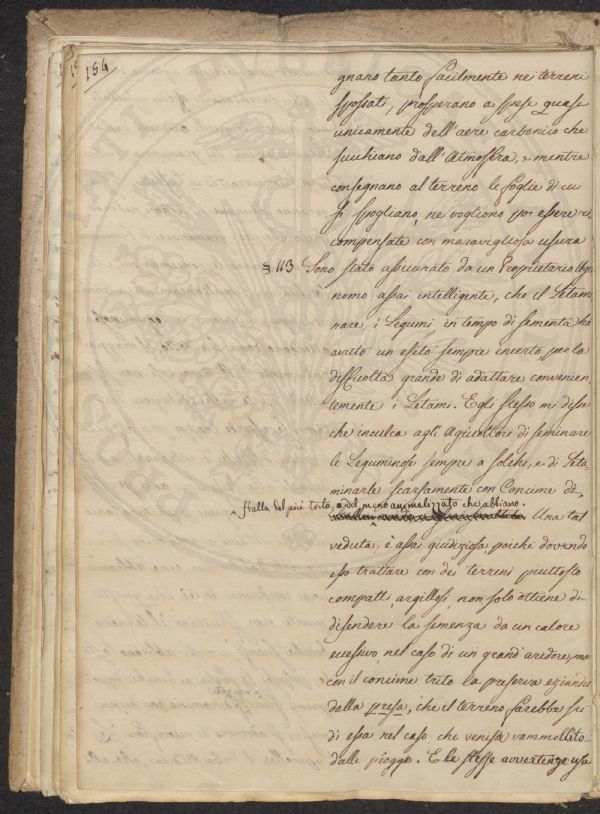 154
gnano tanto facilmente nei terreni
spossati, prosperano a spese quasi
unicamente dell'aere carbonico che
succhiano dall'Atmosfera, e mentre
consegnano al terreno le foglie di cui
si spogliano, ne vogliono poi essere ri
compensate con maravigliosa usura
§. 113 Sono stato assicurato da un Proprietario Agro
nomo assai intelligente, che il Letam
nare, i Legumi in tempo di sementa ha
avuto un esito sempre incerto, per la
difficoltà grande di adattare convenien
temente i Letami. Egli stesso mi disse
che inculca agli Agricoltori di seminare
le Leguminose sempre a solchi, e di Leta
minarle scarsamente con Concime di
stalla del più trito, o del meno animalizzato che abbiano.
Una tal
veduta, è assai giudiziosa, poichè dovendo
esso trattare con dei terreni piuttosto
compatti, argillosi, non solo ottiene di
difendere la semenza da un calore
eccessivo nel caso di un grand'aridore, ma
con il concime trito la preserva eziandio
dalla presa, che il terreno farebbe su
di essa nel caso che venisse rammollito
dalle piogge. E le stesse avvertenze usa